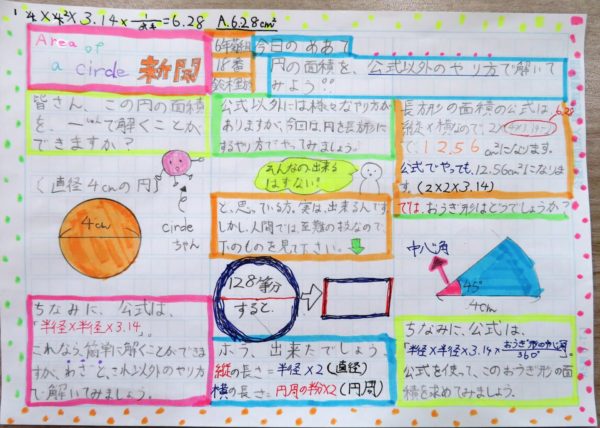 4×4×3.14×
=6.28 A.6.28cm²
Area of
a circle 新聞
今日のめあて
円の面積を、公式以外のやり方で解いて
みよう!!
皆さん、この円の面積
を、
て解くことが
できますか?
(直径4cmの円)
circle
ちゃん
4cm
ちなみに、公式は、
「半径×半径×3.14」。
これなら、簡単に解くことができま
すが、わざと、これ以外のやり方
で解いてみましょう。
公式以外には様々なやり方が
ありますが、今回は、円を長方形に
するやり方でやってみましょう。
そんなの出来る
はずない!
と、思っている方、実は、出来るんです。
しかし、人間では至難の技なので、
下のものを見て下さい。
128等分
すると…
ホラ、出来たでしょう。
縦の長さ=半径×2(直径)
横の長さ=円周の半分×2(円周)
長方形の面積の公式は
縦×横なので、2×
6.28
で、12.56cm²になります。
公式でやっても、12.56cm²になりま
す。(2×2×3.14)
では、おうぎ形はどうでしょうか?
中心角
45°
4cm
ちなみに、公式は、
「半径×半径×3.14×おうぎ形の中心角/360°」
公式を使って、このおうぎ形の面
積を求めてみましょう。